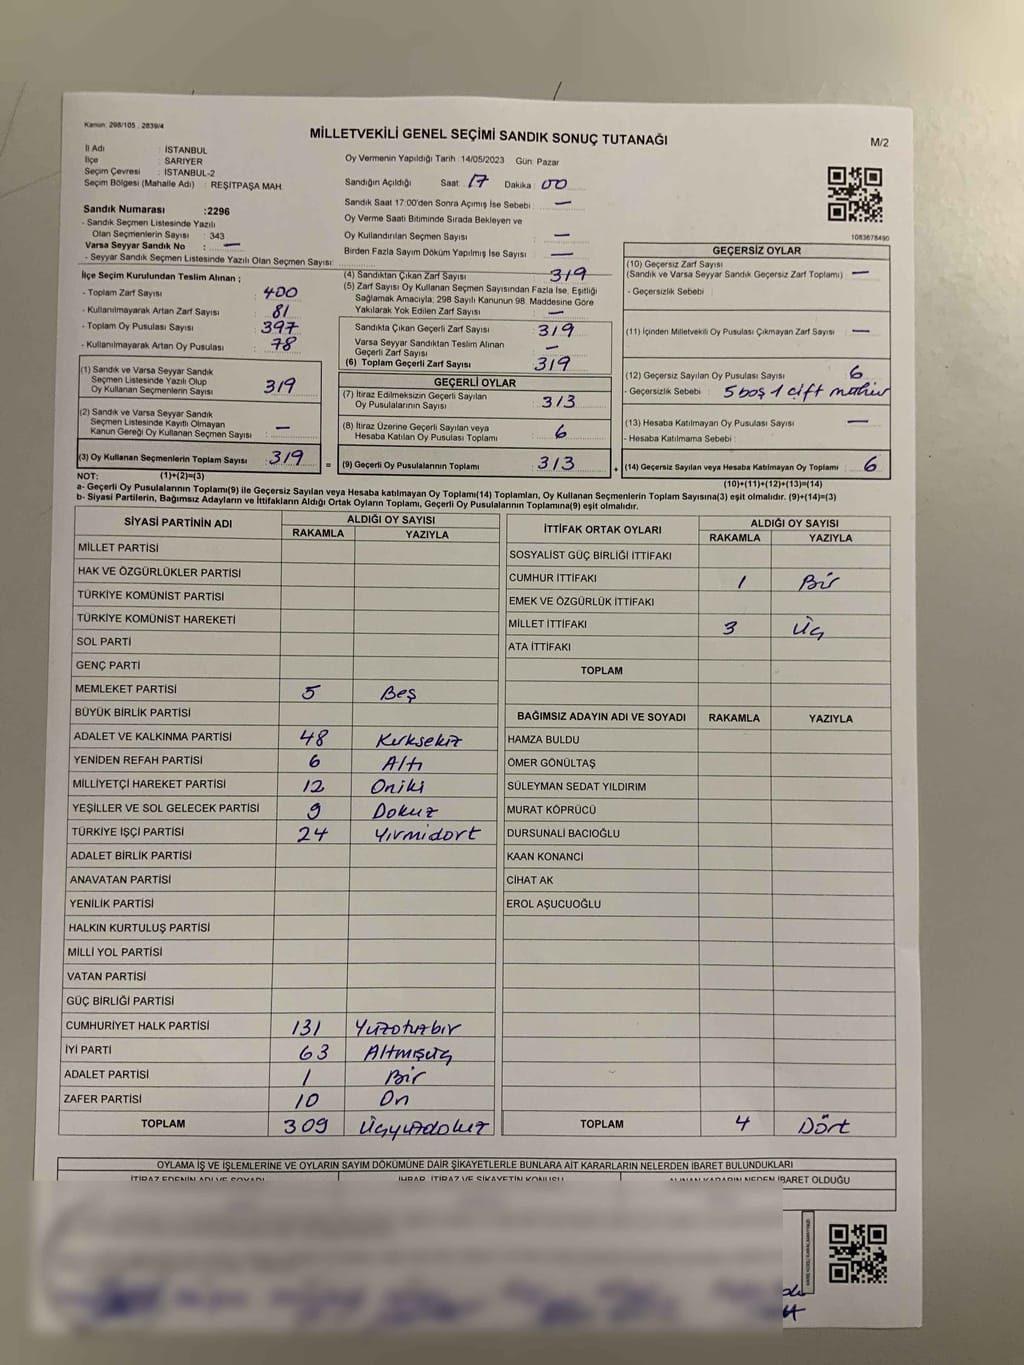 Kanun: 298/105 , 2839/4
MİLLETVEKİLİ GENEL SEÇİMİ SANDIK SONUÇ TUTANAĞI
M/2
İl Adı : İSTANBUL
İlçe : SARIYER
Seçim Çevresi : İSTANBUL-2
Seçim Bölgesi (Mahalle Adı) : REŞİTPAŞA MAH.
Sandık Numarası :2296
- Sandık Seçmen Listesinde Yazılı
Olan Seçmenlerin Sayısı : 343
Varsa Seyyar Sandık No : —
- Seyyar Sandık Seçmen Listesinde Yazılı Olan Seçmen Sayısı:
İlçe Seçim Kurulundan Teslim Alınan ;
- Toplam Zarf Sayısı : 400
- Kullanılmayarak Artan Zarf Sayısı : 81
- Toplam Oy Pusulası Sayısı : 397
- Kullanılmayarak Artan Oy Pusulası : 78
(1) Sandık ve Varsa Seyyar Sandık
Seçmen Listesinde Yazılı Olup
Oy Kullanan Seçmenlerin Sayısı 319
(2) Sandık ve Varsa Seyyar Sandık
Seçmen Listesinde Kayıtlı Olmayan
Kanun Gereği Oy Kullanan Seçmen Sayısı —
(3) Oy Kullanan Seçmenlerin Toplam Sayısı 319
Oy Vermenin Yapıldığı Tarih :14/05/2023 Gün: Pazar
Sandığın Açıldığı Saat : 17 Dakika : 00
Sandık Saat 17:00'den Sonra Açımış İse Sebebi : —
Oy Verme Saati Bitiminde Sırada Bekleyen ve
Oy Kullandırılan Seçmen Sayısı : —
Birden Fazla Sayım Döküm Yapılmış İse Sayısı : —
(4) Sandıktan Çıkan Zarf Sayısı 319
(5) Zarf Sayısı Oy Kullanan Seçmen Sayısından Fazla İse, Eşitliği
Sağlamak Amacıyla, 298 Sayılı Kanunun 98. Maddesine Göre
Yakılarak Yok Edilen Zarf Sayısı : —
Sandıkta Çıkan Geçerli Zarf Sayısı : 319
Varsa Seyyar Sandıktan Teslim Alınan
Geçerli Zarf Sayısı : —
(6) Toplam Geçerli Zarf Sayısı : 319
GEÇERLİ OYLAR
(7) İtiraz Edilmeksizin Geçerli Sayılan
Oy Pusulalarının Sayısı : 313
(8) İtiraz Üzerine Geçerli Sayılan veya
Hesaba Katılan Oy Pusulası Toplamı : 6
= (9) Geçerli Oy Pusulalarının Toplamı : 313
1083678490
GEÇERSİZ OYLAR
(10) Geçersiz Zarf Sayısı
(Sandık ve Varsa Seyyar Sandık Geçersiz Zarf Toplamı) : —
- Geçersizlik Sebebi :
(11) İçinden Milletvekili Oy Pusulası Çıkmayan Zarf Sayısı : —
(12) Geçersiz Sayılan Oy Pusulası Sayısı : 6
- Geçersizlik Sebebi : 5 boş 1 çift mühür
(13) Hesaba Katılmayan Oy Pusulası Sayısı : —
- Hesaba Katılmama Sebebi :
+ (14) Geçersiz Sayılan veya Hesaba Katılmayan Oy Toplamı : 6
NOT: (1)+(2)=(3)
(10)+(11)+(12)+(13)=(14)
a- Geçerli Oy Pusulalarının Toplamı(9) ile Geçersiz Sayılan veya Hesaba katılmayan Oy Toplamı(14) Toplamları, Oy Kullanan Seçmenlerin Toplam Sayısına(3) eşit olmalıdır. (9)+(14)=(3)
b- Siyasi Partilerin, Bağımsız Adayların ve İttifakların Aldığı Ortak Oyların Toplamı, Geçerli Oy Pusulalarının Toplamına(9) eşit olmalıdır.
SİYASİ PARTİNİN ADI ALDIĞI OY SAYISI
RAKAMLA YAZIYLA
MİLLET PARTİSİ
HAK VE ÖZGÜRLÜKLER PARTİSİ
TÜRKİYE KOMÜNİST PARTİSİ
TÜRKİYE KOMÜNİST HAREKETİ
SOL PARTİ
GENÇ PARTİ
MEMLEKET PARTİSİ 5 Beş
BÜYÜK BİRLİK PARTİSİ
ADALET VE KALKINMA PARTİSİ 48 Kırksekiz
YENİDEN REFAH PARTİSİ 6 Altı
MİLLİYETÇİ HAREKET PARTİSİ 12 Oniki
YEŞİLLER VE SOL GELECEK PARTİSİ 9 Dokuz
TÜRKİYE İŞÇİ PARTİSİ 24 Yirmidört
ADALET BİRLİK PARTİSİ
ANAVATAN PARTİSİ
YENİLİK PARTİSİ
HALKIN KURTULUŞ PARTİSİ
MİLLİ YOL PARTİSİ
VATAN PARTİSİ
GÜÇ BİRLİĞİ PARTİSİ
CUMHURİYET HALK PARTİSİ 131 Yüzotuzbir
İYİ PARTİ 63 Altmışüç
ADALET PARTİSİ 1 Bir
ZAFER PARTİSİ 10 On
TOPLAM 309 Üçyüzdokuz
İTTİFAK ORTAK OYLARI ALDIĞI OY SAYISI
RAKAMLA YAZIYLA
SOSYALİST GÜÇ BİRLİĞİ İTTİFAKI
CUMHUR İTTİFAKI 1 Bir
EMEK VE ÖZGÜRLÜK İTTİFAKI
MİLLET İTTİFAKI 3 Üç
ATA İTTİFAKI
TOPLAM
BAĞIMSIZ ADAYIN ADI VE SOYADI RAKAMLA YAZIYLA
HAMZA BULDU
ÖMER GÖNÜLTAŞ
SÜLEYMAN SEDAT YILDIRIM
MURAT KÖPRÜCÜ
DURSUNALİ BACIOĞLU
KAAN KONANCİ
CİHAT AK
EROL AŞUCUOĞLU
TOPLAM 4 Dört
OYLAMA İŞ VE İŞLEMLERİNE VE OYLARIN SAYIM DÖKÜMÜNE DAİR ŞİKAYETLERLE BUNLARA AİT KARARLARIN NELERDEN İBARET BULUNDUKLARI
İTİRAZ EDENİN ADI VE SOYADI İHBAR, İTİRAZ VE ŞİKAYETİN KONUSU ALINAN KARARIN NEDEN İBARET OLDUĞU